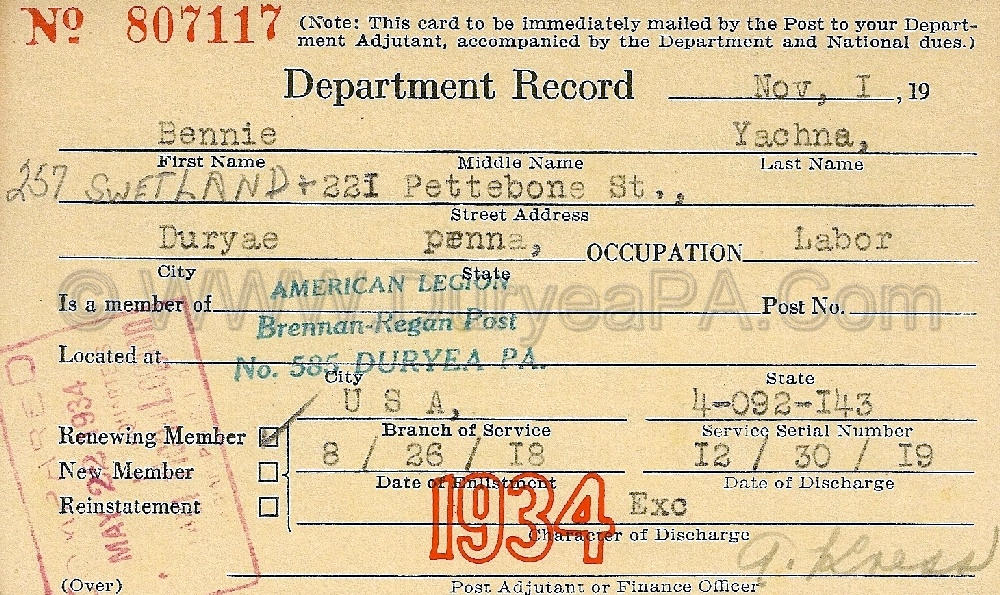 No 807117 (Note: This card to be immediately mailed by the Post to your Depart-
ment Adjutant, accompanied by the Department and National dues.)
Department Record Nov, I , 19
Bennie Yachna,
First Name Middle Name Last Name
257 SWETLAND + 22I Pettebone St.,,
Street Address
Duryae penna, OCCUPATION Labor
City State
© WWW.DuryeaPA.Com
Is a member of AMERICAN LEGION Post No.
Brennan-Regan Post
Located at No. 585 DURYEA PA.
City State
U S A, 4-092-I43
Renewing Member Branch of Service Service Serial Number
8 / 26 / I8 I2 / 30 / I9
New Member Date of Enlistment Date of Discharge
Reinstatement 1934 Exc
Character of Discharge
MAY 22 1934
(Over) Post Adjutant or Finance Officer